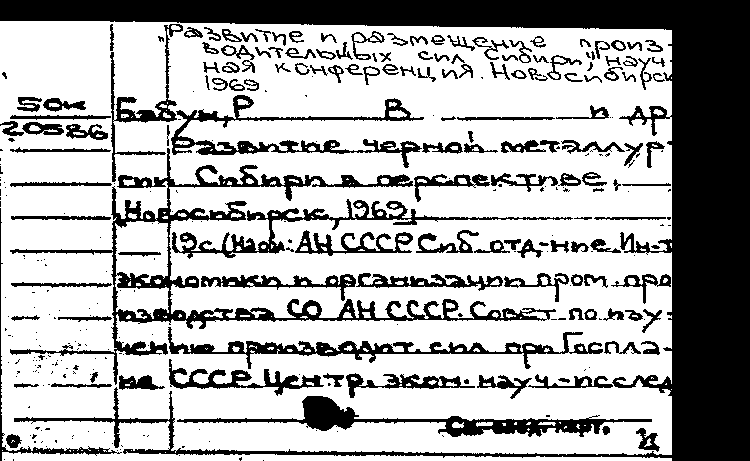 „Развитие и размещение произ-
водительных сил Сибири", науч-
ная конференция. Новосибирск
1969.
50к Бабун, Р В и др
20586
Развитие черной металлург
гии Сибири в перспективе,
Новосибирск, 1969,
19с. (Надм: АН СССР Сиб. отд-ние. Ин-т
экономики и организации пром. про
изводства СО АН СССР. Совет по изу-
чению производит. сил при Госпла-
не СССР. Центр. экон. науч.-исслед
См. след. карт.